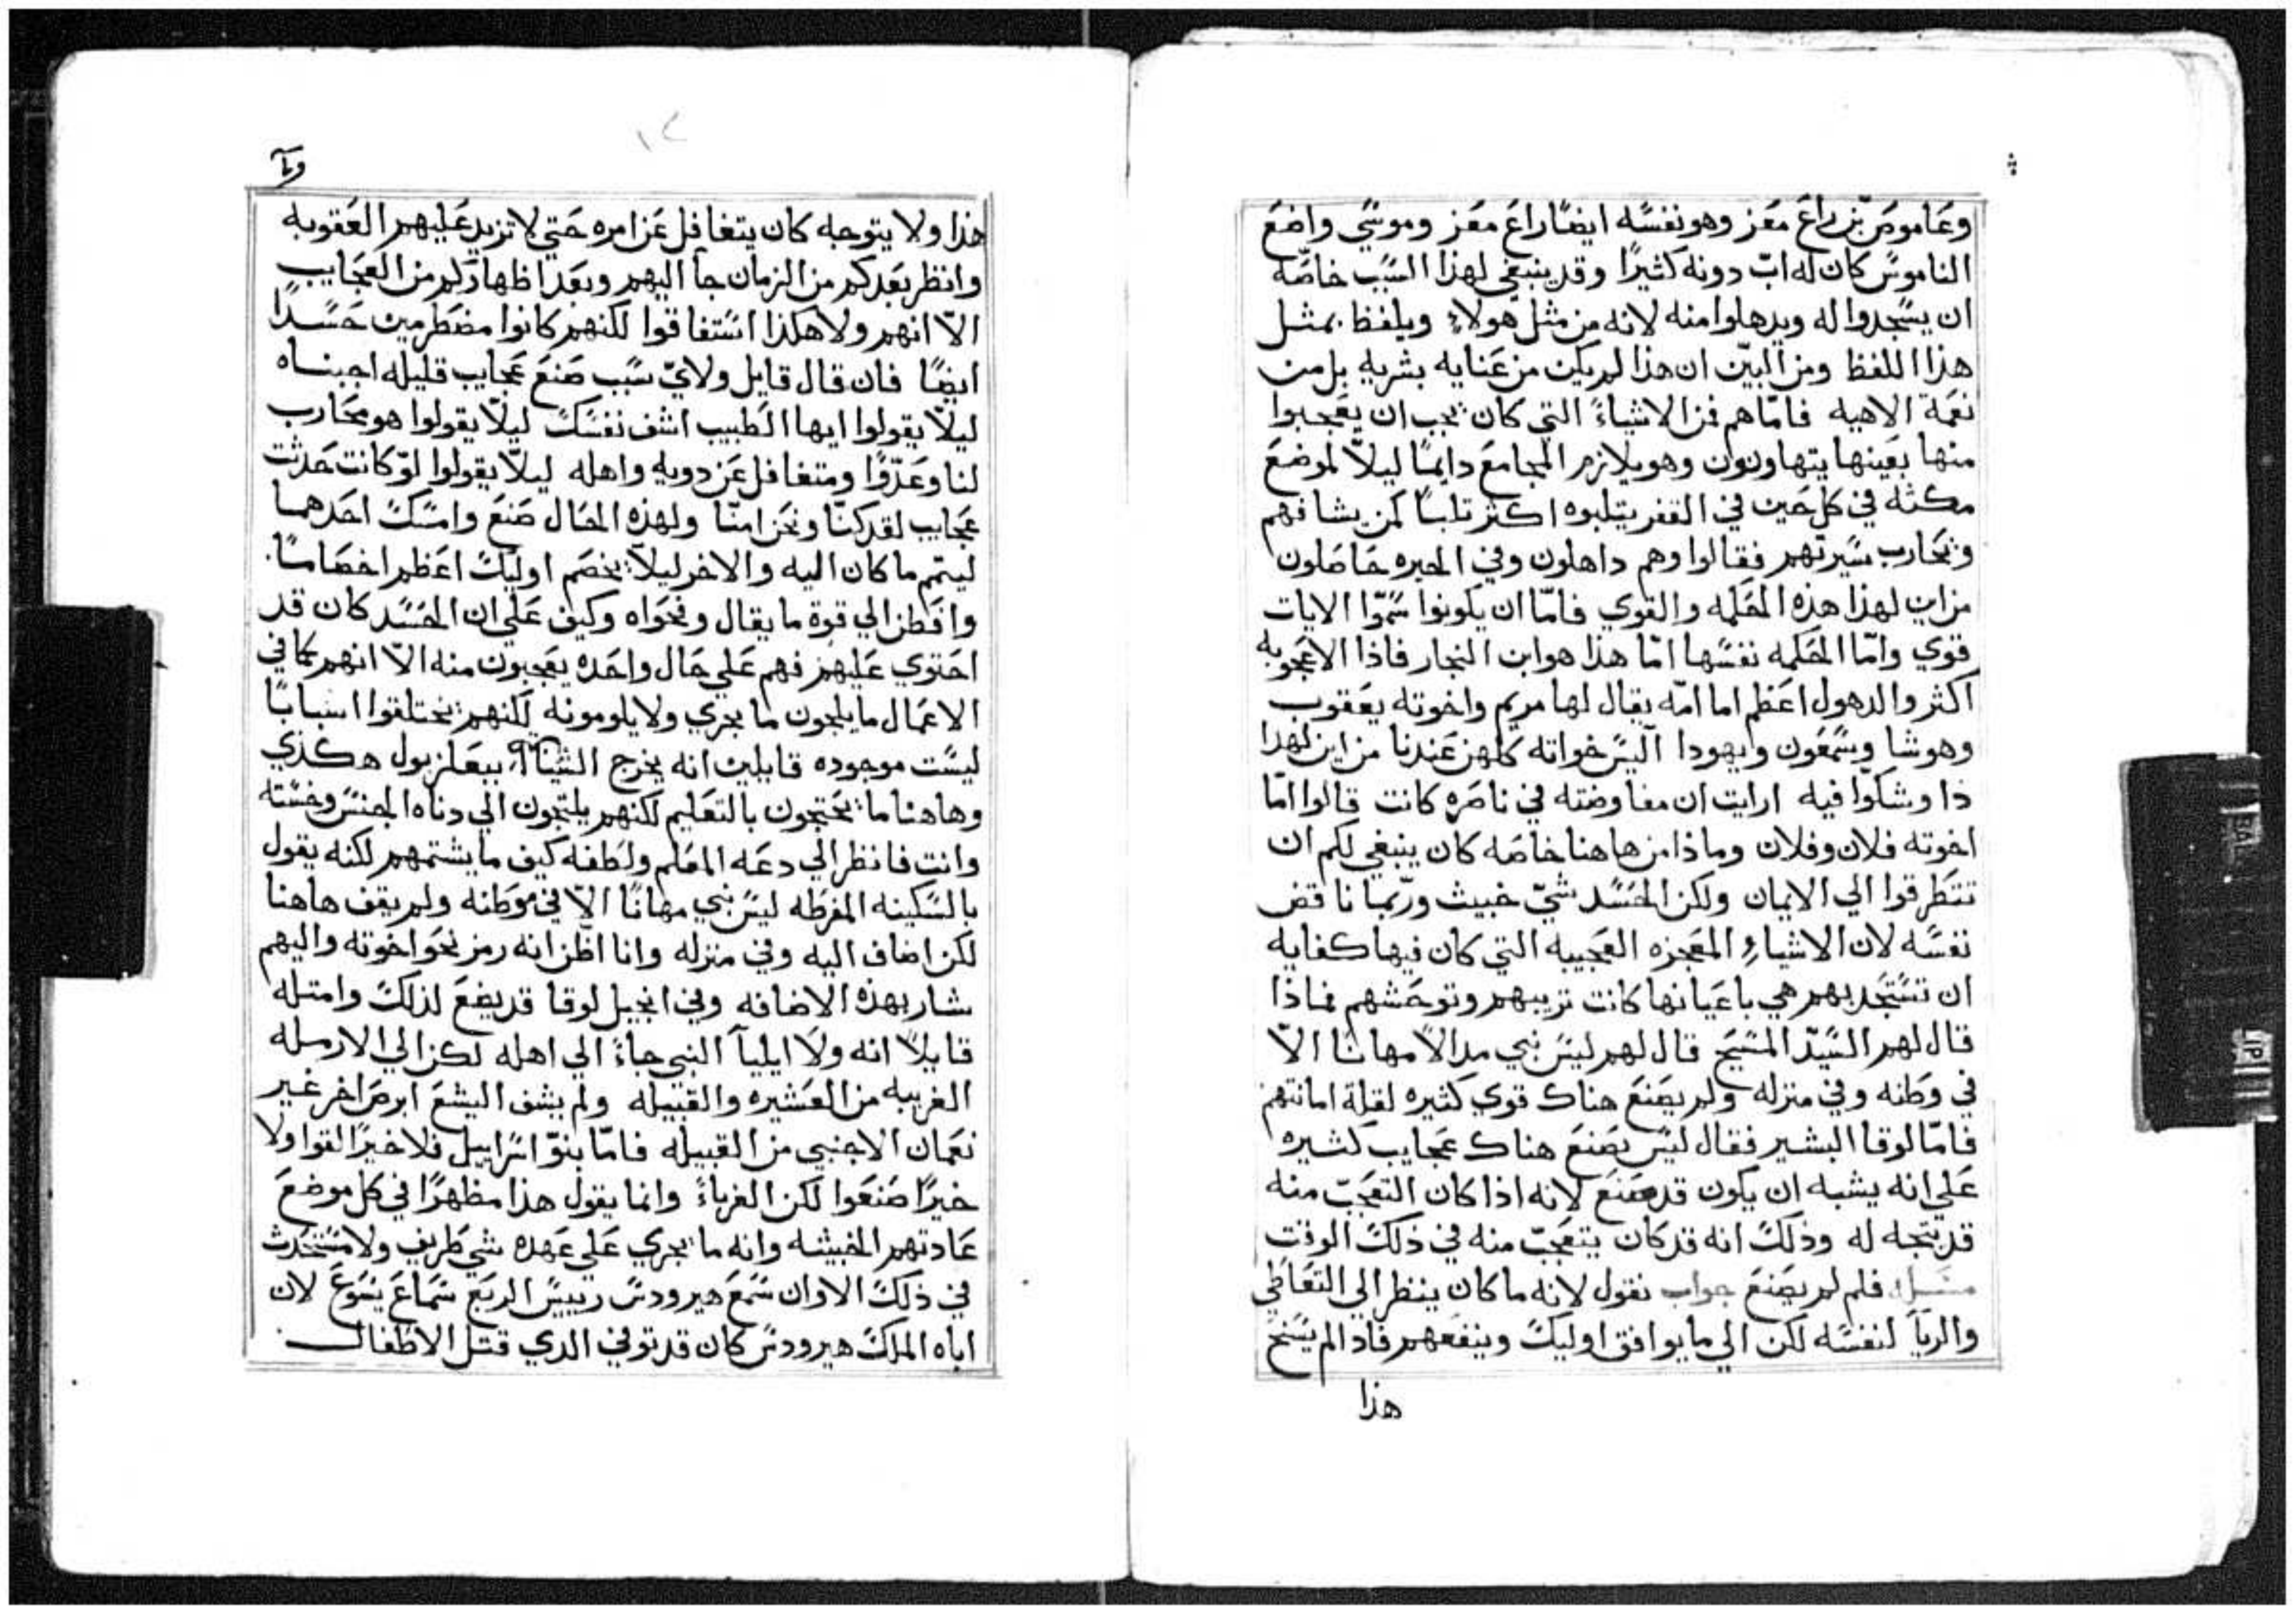 وعاموص بن راع معز وهو نفسه ايضًا راع معز وموسي واضع
الناموس كان له اب دونه كثيرًا وقد ينبغي لهذا السبب خاصّه
ان يسجدوا له ويدهلوا منه لانه من مثل هولاء ويلفظ بمثل
هذا اللفظ ومن البيّن ان هذا لم يكن من عنايه بشريه بل من
نعمة الاهيه فامّا هم فمن الاشياء التي كان يجب ان يعجبوا
منها بعينها يتهاونون وهو يلازم المجامع دايمًا ليلّا لموضع
مكثه في كل حين في القفر يتلبوه اكثر تلبًا كمن يشافهم
ويحارب سيرتهم فقالوا وهم داهلون وفي الحيره حاصلون
من اين لهذا هذه الحكمه والقوي فامّا ان يكونوا سمّوا الايات
قوي وامّا الحكمه نفسها امّا هذا هو ابن النجار فاذا الاعجوبه
اكثر والدهول اعظم اما امّه يقال لها مريم واخوته يعقوب
وهوشا وسمعون ويهودا اليس خواته كلهن عندنا من اين لهدا
ذا وشكّوا فيه ارايت ان مفاوضته في ناصره كانت قالوا امّا
اخوته فلان وفلان وماذا من هاهنا خاصه كان ينبغي لكم ان
تتطرقوا الي الايمان ولكن الحسد شيّ خبيث وربّما ناقض
نفسه لان الاشياء المعجزه العجيبه التي كان فيها كفايه
ان تستجد بهم هي باعيانها كانت تريبهم وتوحشهم فماذا
قال لهم السيّد المسيح قال لهم ليس نبي مدالًا مهانًا الّا
في وطنه وفي منزله ولم يصنع هناك قوي كثيره لقلة امانتهم
فامّا لوقا البشير فقال ليس يصنع هناك عجايب كثيره
علي انه يشبه ان يكون قد صنع لانه اذا كان التعجّب منه
قد يتجه له وذلك انه قد كان يتعجّب منه في ذلك الوقت
فلم لم يصنع جواب نقول لانه ما كان ينظر الي التعاطي
والريآ لنفسه لكن الي ما يوافق اوليك وينفعهم فاذا لم ينجح
هذا
هذا ولا يتوجه كان يتغافل عن امره حتي لا تزيد عليهم العقوبه
وانظر بعد كم من الزمان جا اليهم وبعد اظهار كم من العجايب
الّا انهم ولا هكذا استفاقوا لكنهم كانوا مضطرمين حسدًا
ايضًا فان قال قايل ولايّ سبب صنع عجايب قليله اجبناه
ليلّا يقولوا ايها الطبيب اشف نفسك ليلّا يقولوا هو محارب
لنا وعدوًّا ومتغافل عن دويه واهله ليلّا يقولوا لو كانت حدثت
عجايب لقد كنّا ونحن امنّا ولهذه الحال صنع وامسك احدهما
ليتم ما كان اليه والاخر ليلّا يخصم اوليك اعظم اخصامًا
وافطن الي قوة ما يقال وفحواه وكيف علي ان الحسد كان قد
احتوي عليهم فهم علي حال واحده يعجبون منه الّا انهم كما في
الاعمال ما يلجون ما يجري ولا يلومونه لكنهم يختلقوا اسبابًا
ليست موجوده قايلين انه يخرج الشياطين ببعلزبول هكذي
وهاهنا ما يحتجون بالتعليم لكنهم يلتجون الي دناه الجنس وخسّته
وانت فانظر الي دعه المعلم ولطفه كيف ما يشتمهم لكنه يقول
بالسكينه المفرطه ليس نبي مهانًا الّا في موطنه ولم يقف هاهنا
لكن اضاف اليه وفي منزله وانا اظن انه رمز نحو اخوته واليهم
شار بهذه الاضافه وفي انجيل لوقا قد يضع لذلك وامتله
قايلًا انه ولا ايليآ النبي جاء الي اهله لكن الي الارمله
الغريبه من العشيره والقبيله ولم يشف اليشع ابرص اخر غير
نعمان الاجنبي من القبيله فامّا بنوّ اسراييل فلا خيرًا لقوا ولا
خيرًا صنعوا لكن الغرباء وانما يقول هذا مظهرًا في كل موضع
عادتهم الخبيثه وانه ما يجري علي عهده شي طريف ولا مستحدث
في ذلك الاوان سمع هيرودس رييس الربع سماع يسوع لان
اباه الملك هيرودس كان قد توفي الدي قتل الاطفال